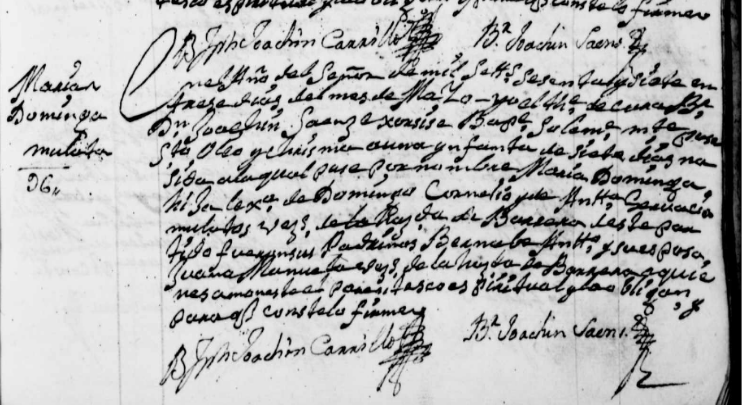 B.r Jph Joachin Carrillo B.r Joachin Saens.
Maria
Dominga
mulata
96
En el Año del Señor de mil Sett.s Sesenta y Siete en
trese dias del mes de Mayo - yo el th.e de cura B.r
D.n Joachin Saenz exorsise Baptt.e Solem.mte puse
S.to Oleo y chrisma a una ynfanta de siete dias na
sida a la qual puse por nombre Maria Dominga
hija lex.a de Domingo Cornelio y de Antt.a
mulatos vez.s de la Hasda de Barrera deste par
tido fueron sus Padrinos Bernabe Antt.o y su esposa
Juana Manuela vez.s de la hasda de Barrera a quie
nes amoneste el parentesco espiritual y la obligon, y
para q.e conste lo firme
B.r Jph Joachin Carrillo B.r Joachin Saens.